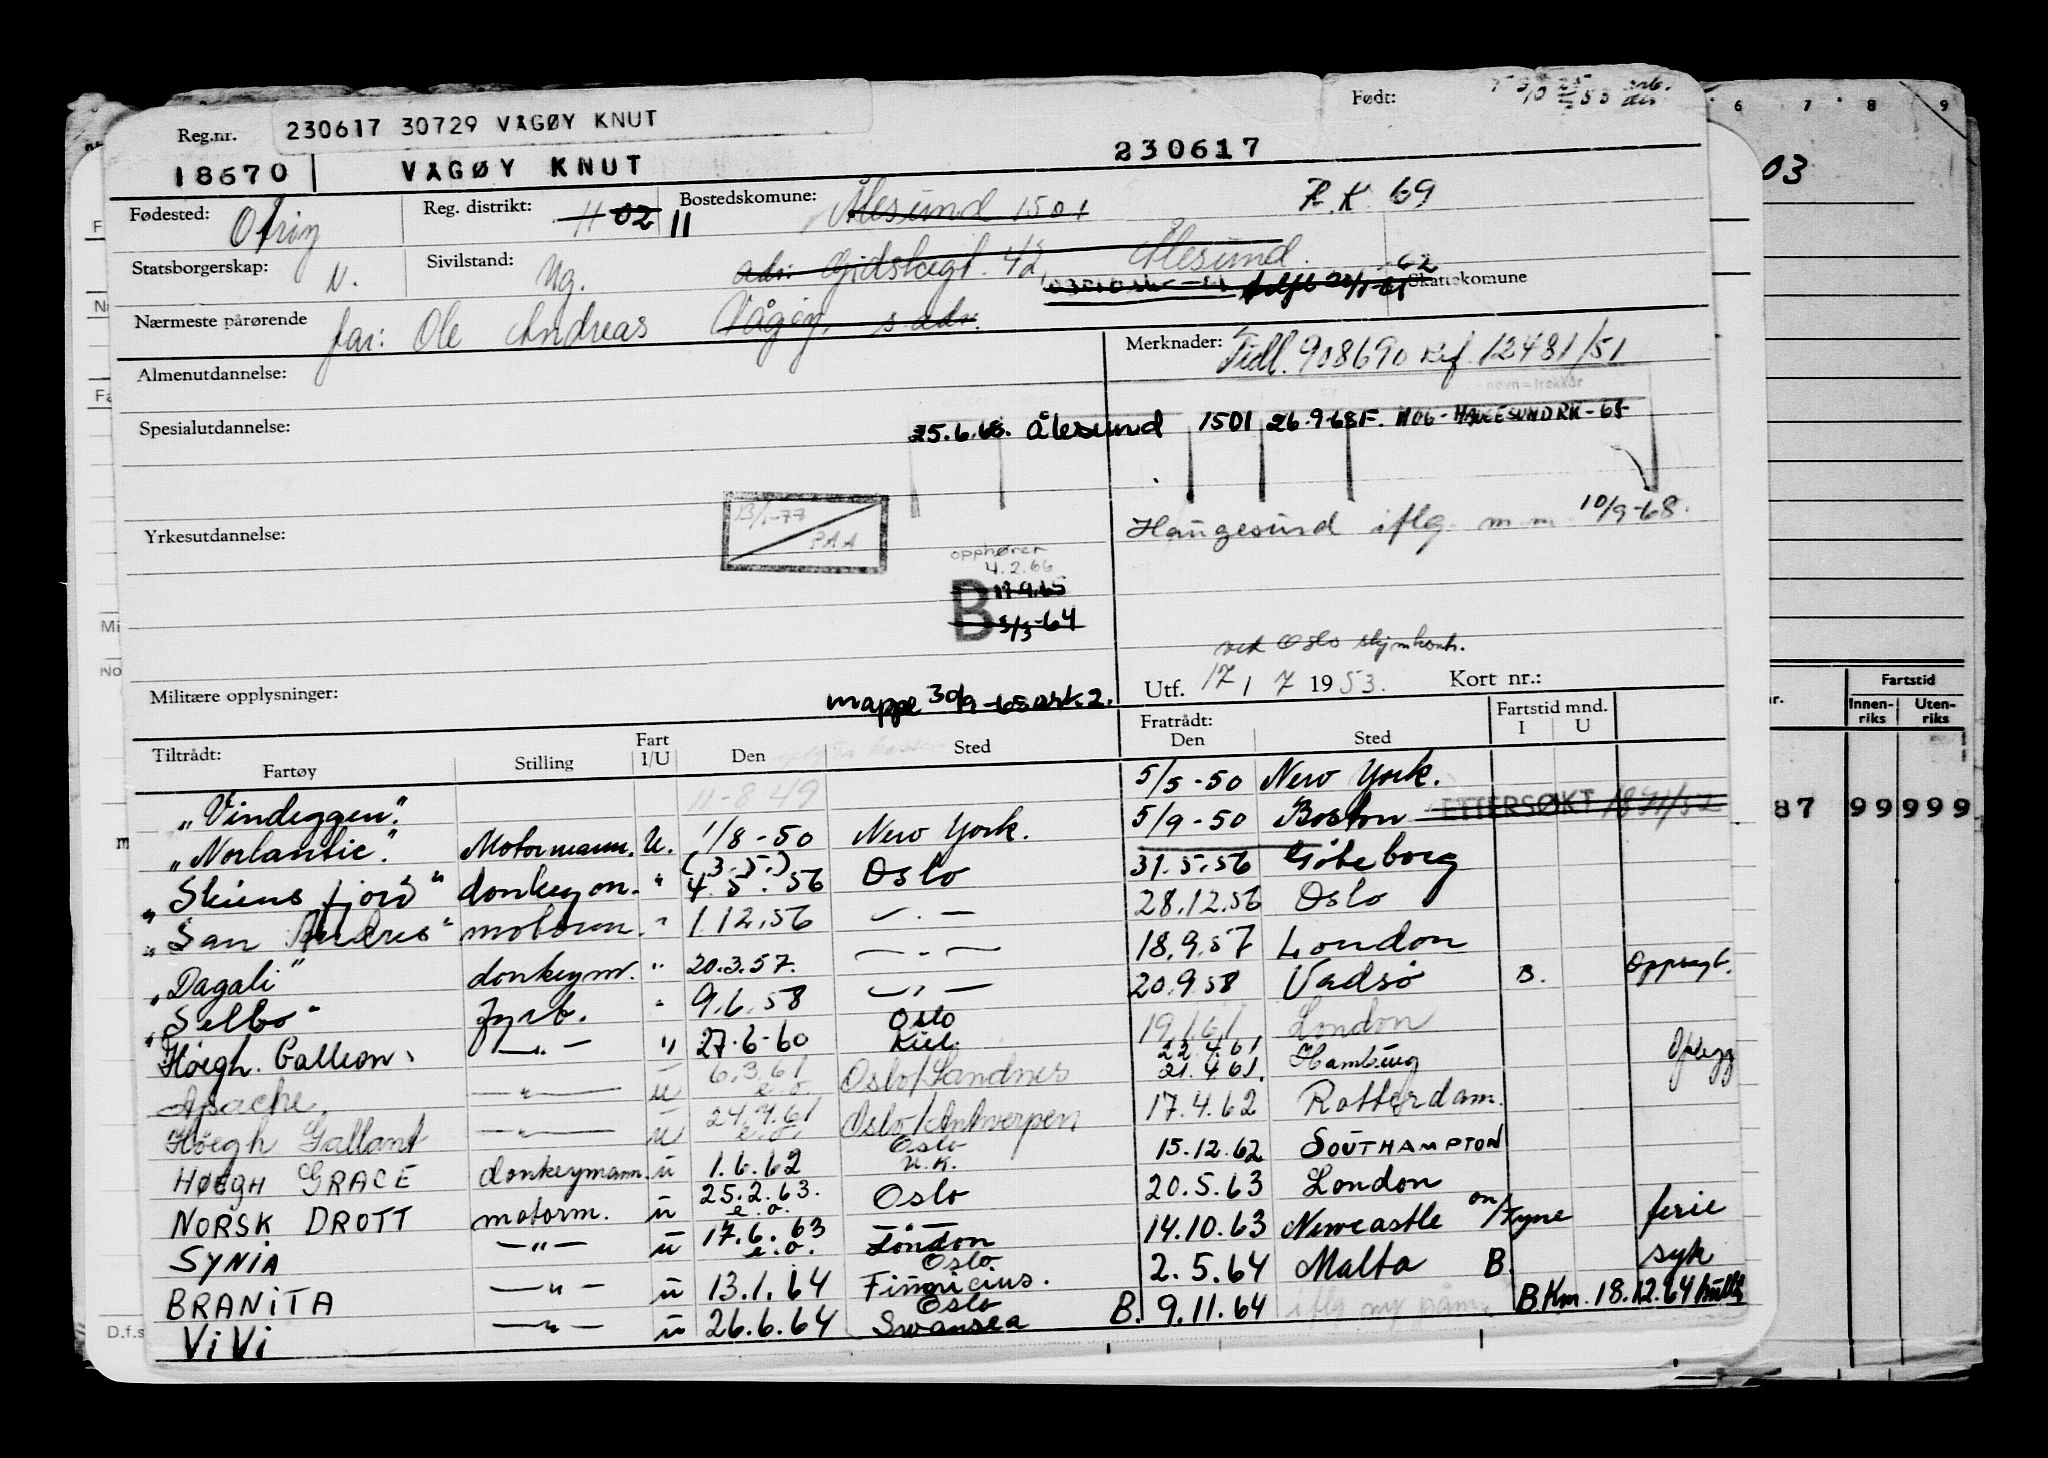 Født:
Reg.nr.
230617 30729 VÅGØY KNUT
18670 VÅGØY KNUT 230617
Fødested: Otrøy Reg. distrikt: H 02 11 Bostedskomune: Ålesund 1501 R.K 69
Statsborgerskap: N. Sivilstand: Ug. adr: Gidskegt. 42, Ålesund. Skattekomune
Nærmeste pårørende far: Ole Andreas Vågøy, s. adr.
Almenutdannelse:
Merknader: Tidl. 908690 Ref. 12481/51
Spesialutdannelse:
25.6.68. Ålesund 1501 26.9-68 F. 1106-HAUGESUND RK-68
Yrkesutdannelse:
13/1-77 PAA
Haugesund iflg. m.m. 10/9-68.
opphører
4.2.66
B 17.9.65
5/3-64
ved Oslo sjømkont.
Militære opplysninger:
mappe 30/9-65 ark. 2.
Utf. 17 / 7 1953. Kort nr.:
Tiltrådt: Fartøy Stilling Fart I/U Den Sted Fratrådt: Den Sted Fartstid mnd. I U
"Vindeggen". 11-8 49 5/5-50 New York.
"Norlantic". Motormann. U. 1/8-50 New York. 5/9-50 Boston ETTERSØKT
"Skiensfjord" donkeym. " (3.5.) 4.5.56 Oslo 31.5.56 Göteborg
"San Andres" motorm. " 1.12.56 — " — 28.12.56 Oslo
"Dagali" donkeym. " 20.3.57. — " — 18.9.57 London
"Selbo" fyrb. " 9.6.58 — " — 20.9.58 Vadsø B. Oppsagt.
"Høegh Galleon" — " — " 27.6-60 Oslo Kiel. 19.1.61. London
Apache, — " — u 6.3.61 e.o. Oslo/Sandnes 22.4.61 21.4.61. Hamburg Opplegg
Høegh Gallant — " — u 24.7.61 e.o. Oslo/Antwerpen 17.4.62 Rotterdam.
HØEGH GRACE donkeymann. u 1.6.62 Oslo U.K. 15.12.62 SOUTHAMPTON
NORSK DROTT motorm. u 25.2.63. e.o. Oslo 20.5.63 London
SYNIA — " — u 17.6.63 e.o. London 14.10.63 Newcastle on/Tyne ferie
BRANITA — " — u 13.1.64 Oslo Fiumicino. 2.5.64 Malta B. syk
ViVi — " — u 26.6.64 Oslo Swansea B. 9.11.64 B Km. 18.12.64
6 7 8 9
03
Fartstid
Innen-riks Uten-riks
87 99 999
D.f.s